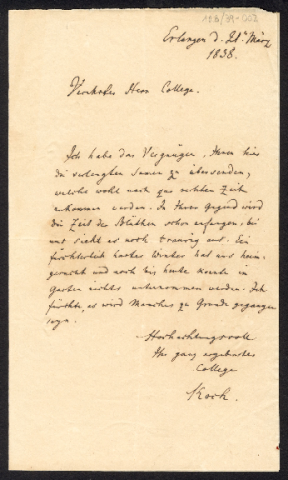 Erlangen d. 21t März
1838.
Verehrter Herr College.
Ich habe das Vergnügen, Ihnen hier
die verlangten Samen zu übersenden,
welche wohl noch zur rechten Zeit
ankommen werden. In Ihrer Gegend wird
die Zeit der Blüthen schon anfangen, bei
uns sieht es noch traurig aus. Ein
fürchterlich harter Winter hat uns heim-
gesucht und noch bis heute konnte im
Garten nichts unternommen werden. Ich
fürchte, es wird Manches zu Grunde gegangen
seyn.
Hochachtungsvoll
Ihr ganz ergebenster
College
Koch.